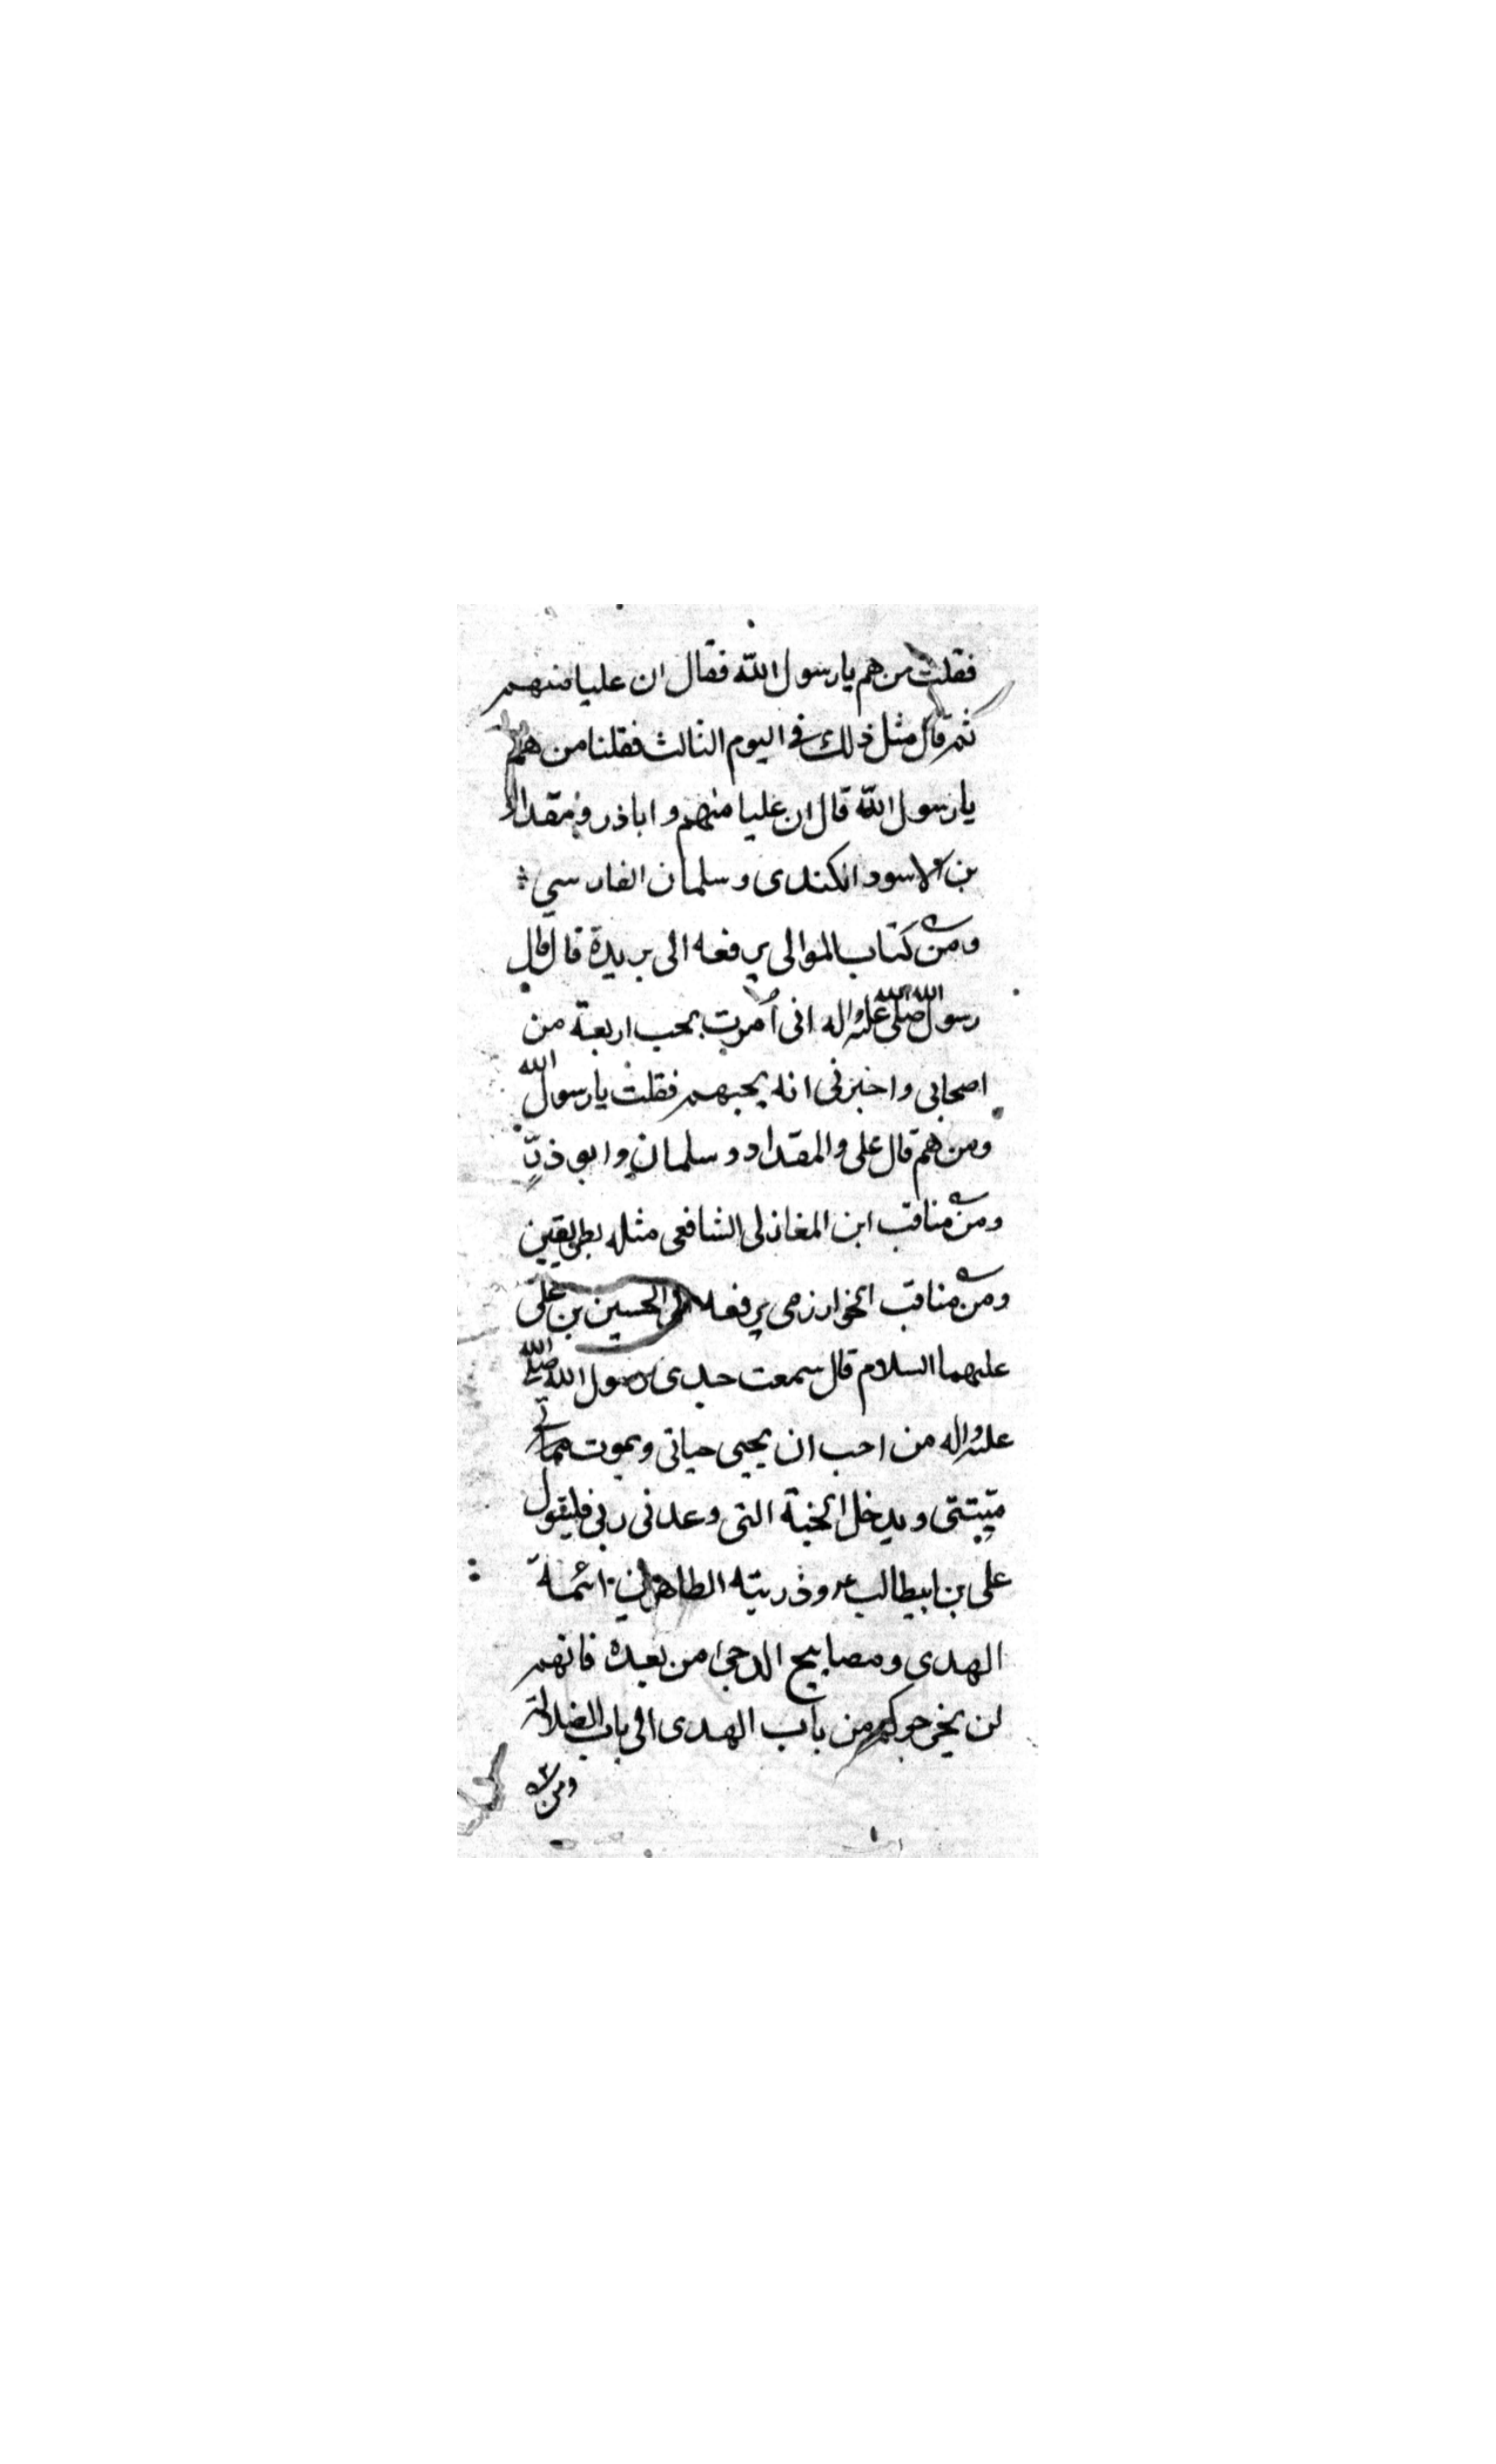 فقلت من هم يا رسول الله فقال ان عليا منهم
ثم قال مثل ذلك في اليوم الثالث فقلنا من هم
يا رسول الله قال ان عليا منهم و اباذر و مقداد
بن الاسود الكندى و سلمان الفارسي
ومن كتاب الموالى يرفعه الى بريدة قال قال
رسول الله صلى الله عليه واله انى أمرت بحب اربعة من
اصحابى واخبرنى انه يحبهم فقلت يا رسول الله
ومن هم قال على والمقداد وسلمان وابو ذر
ومن مناقب ابن المغازلى الشافعى مثله بطريقين
ومن مناقب الخوارزمى يرفعه الى الحسين بن على
عليهما السلام قال سمعت جدى رسول الله صلى الله
عليه واله من احب ان يحيى حياتى ويموت مماتى
ميتتى ويدخل الجنة التى وعدنى ربى فليقول
على بن ابيطالب ع وذريته الطاهرين ائمة
الهدى ومصابيح الدجى من بعده فانهم
لن يخرجوكم من باب الهدى الى باب الضلالة
ومن